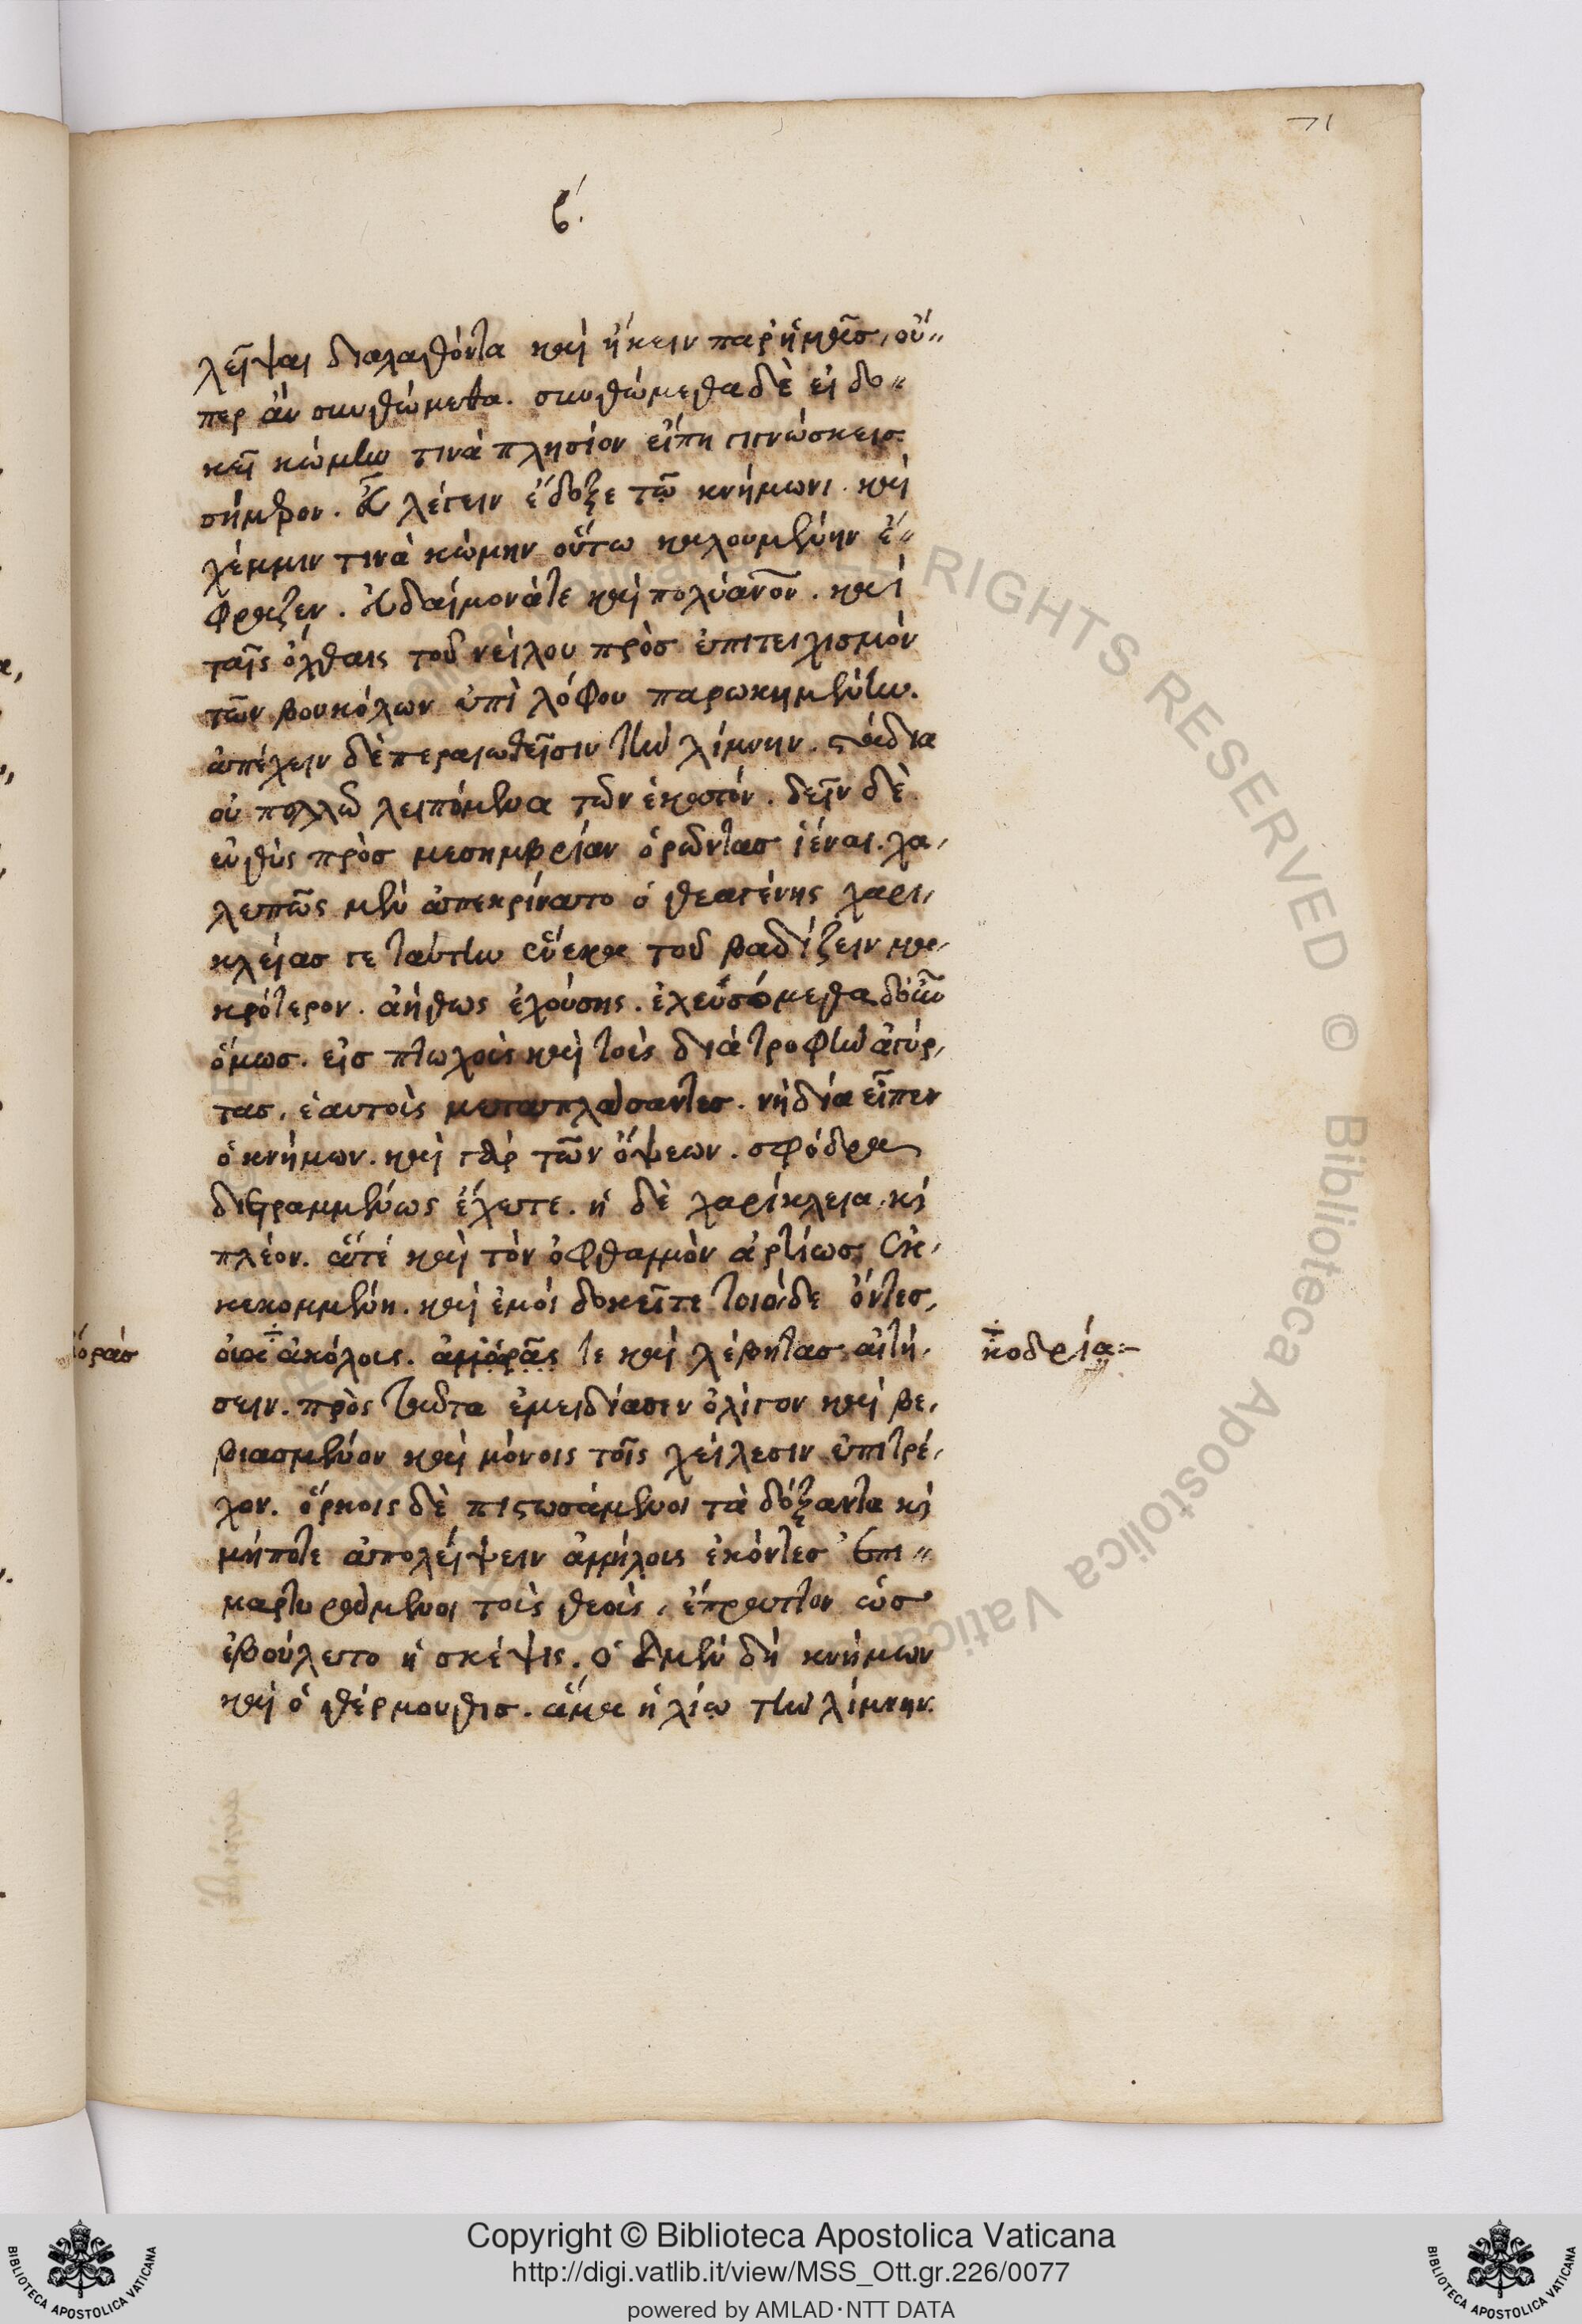 71
β΄.
λεῖψαι διαλαθόντα καὶ ἥκειν παρ' ἡμᾶσ, οὗ"
περ ἂν σκυθώμεθα. σκυθώμεθα δὲ εἰ δο"
κεῖ κώμην τινὰ πλησίον εἴπη γινώσκεισ
σήμερον. εὖ λέγειν ἔδοξε τῶ κνήμωνι. καὶ
χέμμιν τινὰ κώμην οὕτω καλουμένην ἔ"
φραζεν. εὐδαίμονά τε καὶ πολύανον. καὶ
ταῖς ὄχθαις τοῦ νείλου πρὸσ ἐπιτειχισμὸν
τῶν βουκόλων ἐπὶ λόφου παρωκημένην.
ἀπέχειν δὲ περαιωθεῖσιν τὴν λίμνην. στάδια
οὐ πολλῶ λειπόμενα τῶν ἑκατόν. δεῖν δὲ
εὐθὺς πρὸσ μεσημβρίαν ὁρῶντασ ἰέναι. χα,
λεπῶς μὲν ἀπεκρίνατο ὁ θεαγένης χαρι,
κλείασ γε ταύτην ἕνεκα τοῦ βαδίζειν μα,
κρότερον. ἀήθως ἐχούσης. ἐχευσόμεθα δ' οὖν
ὅμωσ. εἰσ πτωχοὺς καὶ τοὺς διὰ τροφὴν ἀγύρ,
τασ, ἑαυτοὺς μεταπλάσαντεσ. νὴ δία εἶπεν
ὁ κνήμων. καὶ γὰρ τῶν ὄψεων. σφόδρα
διεγραμμένως ἔχετε. ἡ δὲ χαρίκλεια κὶ
πλέον. ἅτε καὶ τὸν ὀφθαλμὸν ἀρτίωσ ἐκ,
κεκομμένη. καὶ ἐμοὶ δοκεῖτε τοιοίδε ὄντεσ,
οὐκ ἀκόλους. ἀλλ' ὁρᾶς τε καὶ λέβητασ αἰτή,
σειν. πρὸς ταῦτα ἐμειδίασεν ὀλίγον καὶ βε,
βιασμένον καὶ μόνοις τοῖς χείλεσιν ἐπιτρέ,
χον. ὅρκοις δὲ πιστωσάμενοι τὰ δόξαντα κὶ
μήποτε ἀπολείψειν ἀλλήλους ἑκόντεσ ἐπι"
μαρτυράμενοι τοὺς θεοὺς, ἔπραττον ὡσ
ἐβούλετο ἡ σκέψις. ὁ μὲν δὴ κνήμων
καὶ ὁ θέρμουθισ. ἅμα ἡλίω τὴν λίμνην.
ὁρᾶσ
κοδρία:-
Copyright © Biblioteca Apostolica Vaticana
http://digi.vatlib.it/view/MSS_Ott.gr.226/0077
powered by AMLAD·NTT DATA
BIBLIOTECA APOSTOLICA VATICANA
BIBLIOTECA APOSTOLICA VATICANA